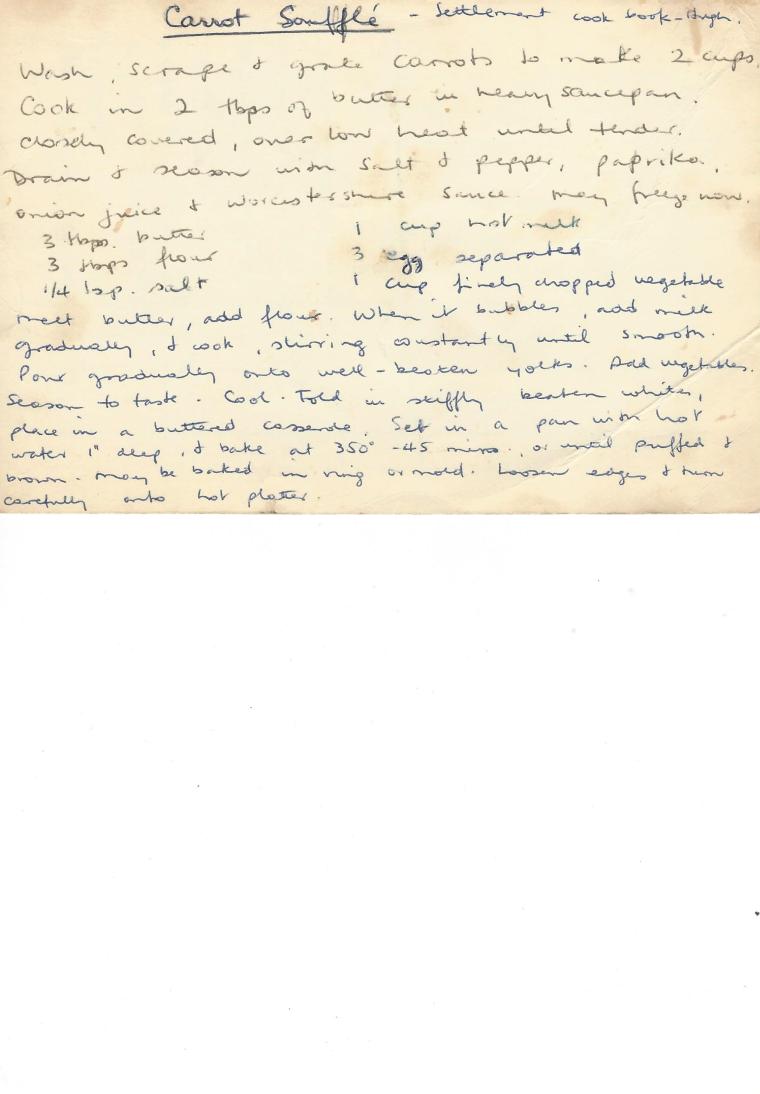 Carrot Soufflé - Settlement cook book - Hugh.
Wash, scrape & grate carrots to make 2 cups.
Cook in 2 tbps of butter in heavy saucepan.
closely covered, over low heat until tender.
Drain & season with salt & pepper, paprika,
onion juice & Worcestershire sauce. may freeze now.
3 tbps. butter 1 cup hot milk
3 tbps flour 3 egg separated
1/4 tsp. salt 1 cup finely chopped vegetable
melt butter, add flour. When it bubbles, add milk
gradually, & cook, stirring constantly until smooth.
Pour gradually onto well-beaten yolks. Add vegetables.
Season to taste. Cool. Fold in stiffly beaten whites,
place in a buttered casserole. Set in a pan with hot
water 1" deep, & bake at 350° -45 mins., or until puffed &
brown. may be baked in ring or mold. Loosen edges & turn
carefully onto hot platter.